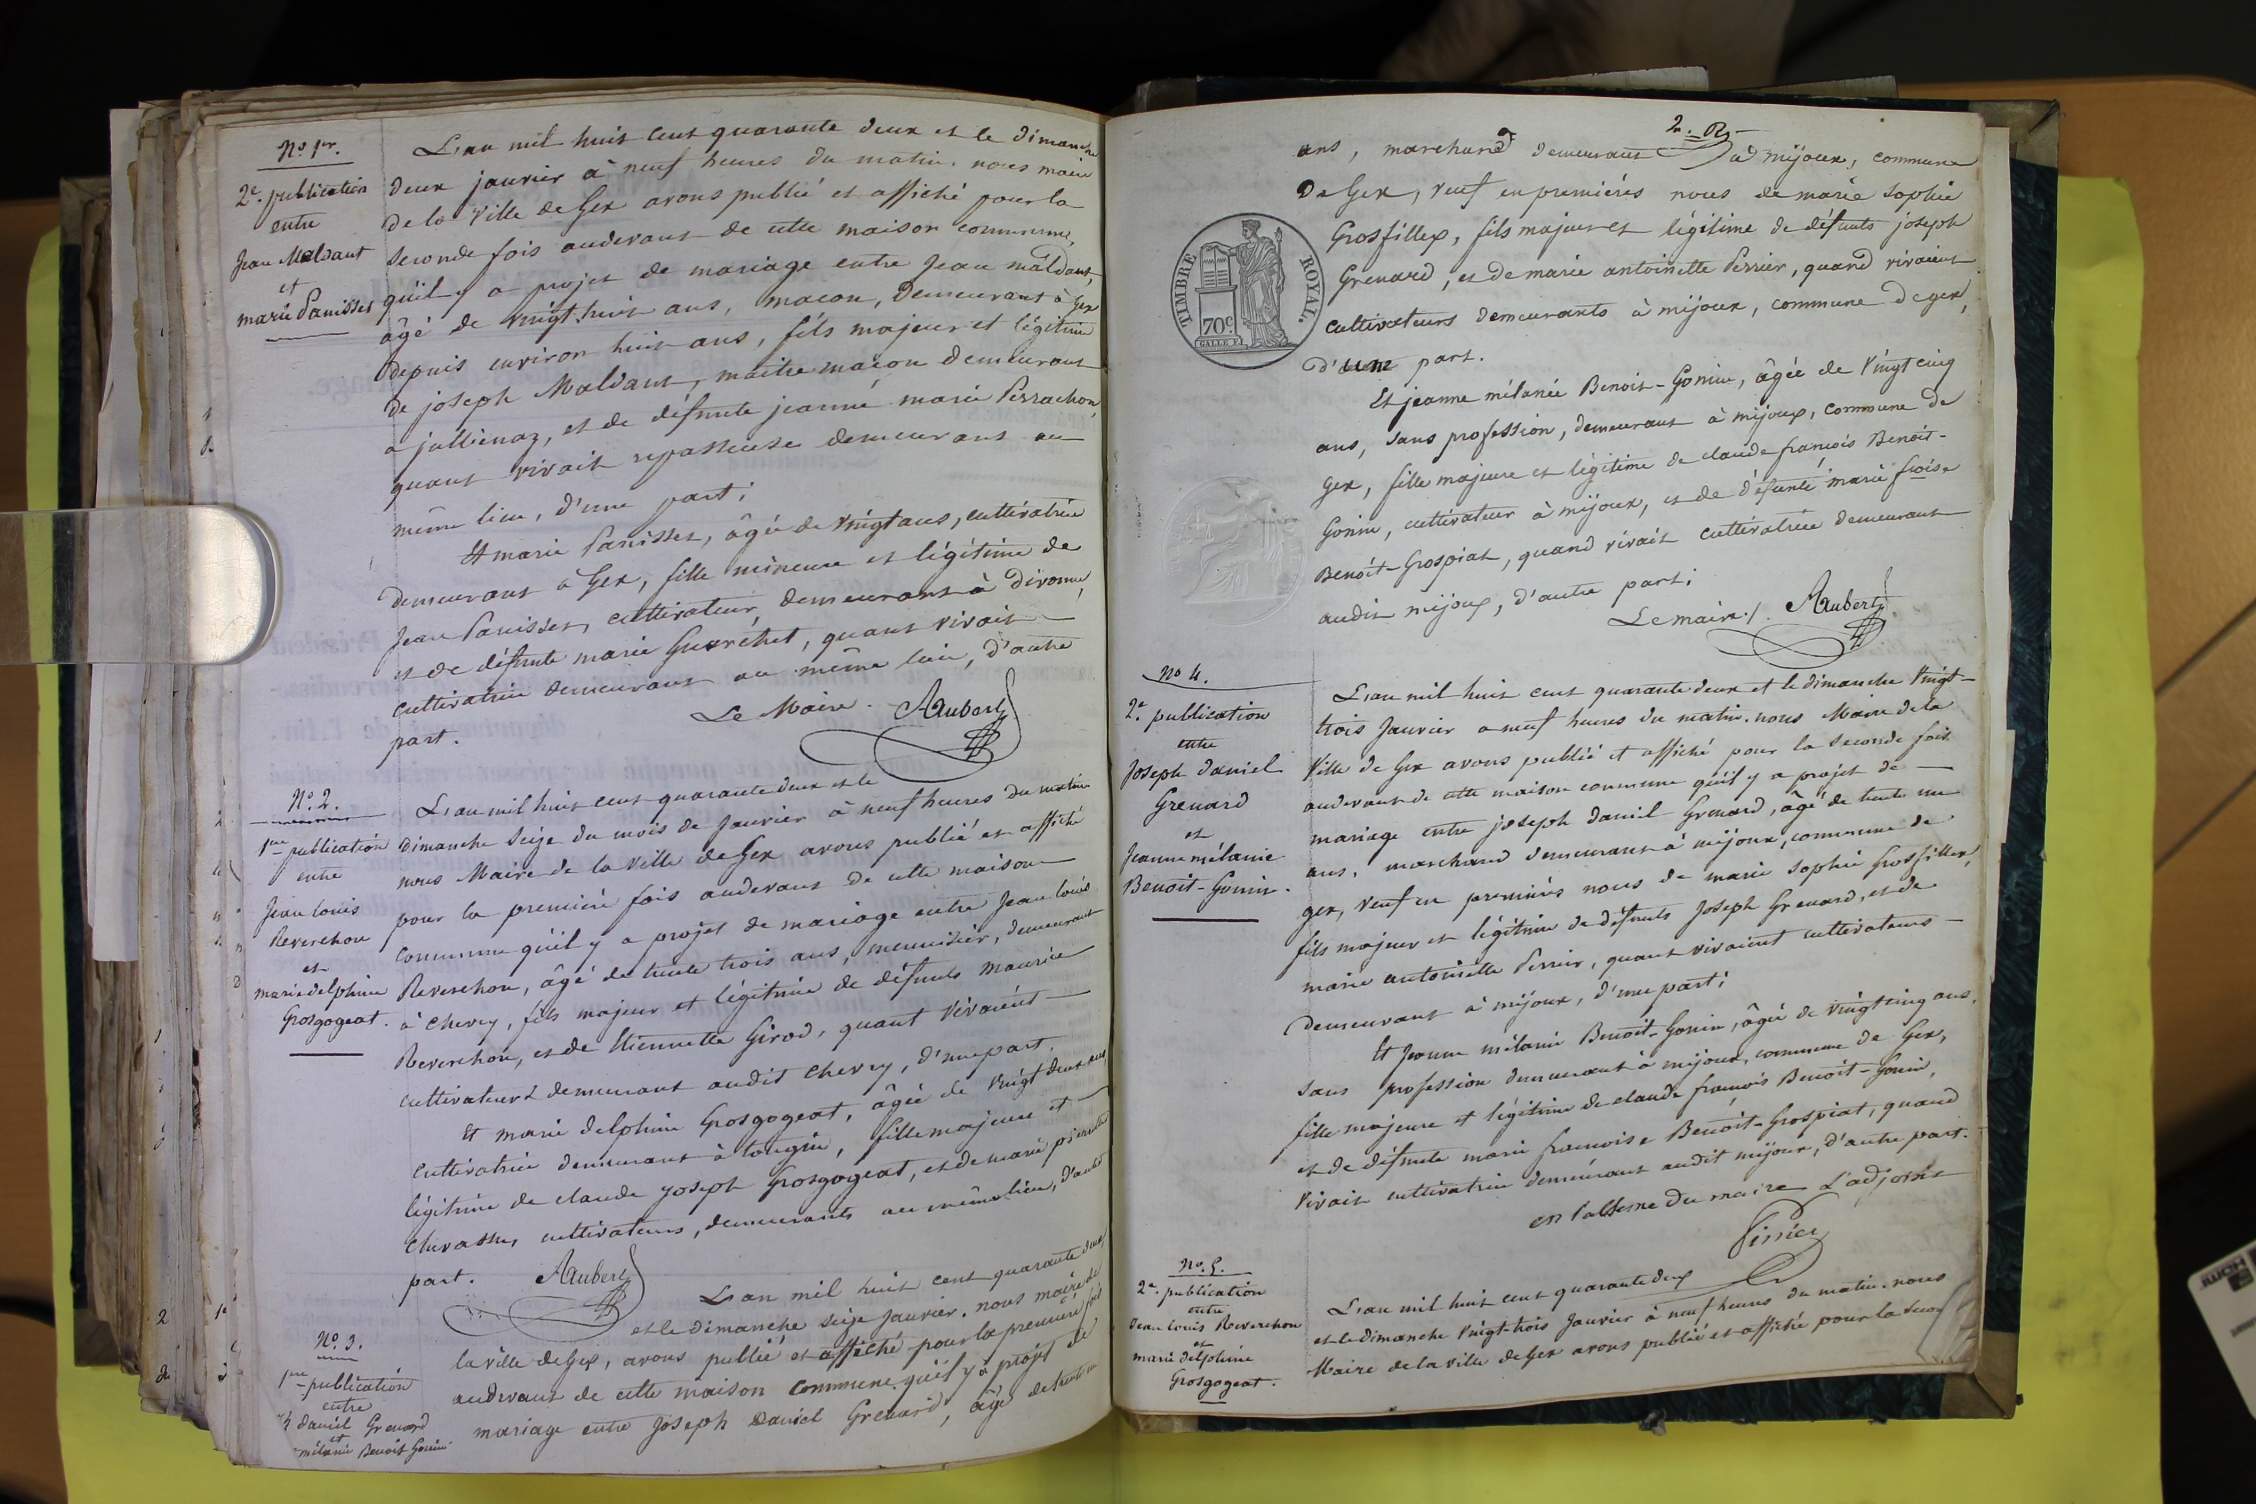 No. 1er.
2e. publication
entre
Jean Maldant
et
marie Panisset
L'an mil huit cent quarante deux et le dimanche
deux janvier à neuf heures du matin. nous maire
de la Ville de Gex avons publié et affiché pour la
seconde fois audevant de cette maison commune,
qu'il y a projet de mariage entre Jean maldant,
âgé de vingt huit ans, maçon, Demeurant à Gex
depuis environ huit ans, fils majeur et légitime
de joseph Maldant, maitre maçon demeurant
a jullienaz, et de défunte jeanne marie Perrachon,
quant vivait repasseuse demeurant au
même lieu, d'une part;
Et marie Panisset, âgée de vingt ans, cultivatrice
demeurant à Gex, fille mineure et légitime de
Jean Panisset, cultivateur, demeurant à divonne,
et de défunte marie Guaréhet, quant vivait
cultivatrice demeurant au même lieu, d'autre
part.
Le Maire. AAubert
No. 2.
1ere publication
entre
Jean louis
Reverchon
et
marie delphine
Grosgogeat.
L'an mil huit cent quarante deux et le
dimanche seize du mois de Janvier à neuf heures du matin
nous Maire de la Ville de Gex avons publié et affiché
pour la première fois audevant de cette maison
commune qu'il y a projet de mariage entre Jean louis
Reverchon, âgé de trente trois ans, menuisier, demeurant
à Chevry, fils majeur et légitime de défunts maurice
Reverchon, et de Etiennette Girod, quant vivaient
cultivateurs demeurant audit Chevry, d'une part.
Et marie delphine Grosgogeat, âgée de vingt deux ans
cultivatrice demeurant à tougin, fille majeure et
légitime de claude joseph Grosgogeat, et de marie pierrette
Chevassu, cultivateurs, demeurants au même lieu, d'autre
part. AAubert
No. 3.
1ere publication
entre
daniel Grenard
et
mélanie Benoit Gonin
L'an mil huit cent quarante deux
et le dimanche seize janvier. nous maire de
la ville de Gex, avons publié et affiché pour la première fois
audevant de cette maison commune qu'il y a projet de
mariage entre Joseph Daniel Grenard, âgé de trente un
2. R
ans, marchand demeurant à mijoux, commune
De Gex, veuf en premières noces de marie Sophie
Grosfillex, fils majeur et légitime de défunts joseph
Grenard, et de marie antoinette Perrier, quand vivaient
cultivateurs demeurants à mijoux, commune de gex,
d'une part.
Et jeanne mélanie Benoit-Gonin, âgée de Vingt cinq
ans, sans profession, demeurant à mijoux, commune de
Gex, fille majeure et légitime de claude françois Benoit-
Gonin, cultivateur à mijoux, et de défunte marie froise
Benoit-Grospiat, quand vivait cultivatrice demeurant
audit mijoux, d'autre part;
Le maire ./. AAubert
TIMBRE ROYAL.
70c.
No 4.
2e. publication
entre
Joseph daniel
Grenard
et
Jeanne mélanie
Benoit-Gonin.
L'an mil huit cent quarante deux et le dimanche Vingt-
trois Janvier a neuf heures du matin. nous Maire de la
Ville de Gex avons publié et affiché pour la seconde fois
audevant de cette maison commune qu'il y a projet de
mariage entre joseph daniel Grenard, âgé de trente un
ans, marchand demeurant à mijoux, commune de
gex, veuf en premières noces de marie Sophie Grosfillex,
fils majeur et légitime de défunts Joseph Grenard, et de
marie antoinette Perrier, quant vivaient cultivateurs
demeurant à mijoux, d'une part;
Et Jeanne mélanie Benoit-Gonin, âgée de vingt cinq ans,
sans profession demeurant à mijoux, commune de Gex,
fille majeure et légitime de claude françois Benoit-Gonin,
et de défunte marie francoise Benoit-Grospiat, quand
vivait cultivatrice demeurant audit mijoux, d'autre part.
en l'absence du maire L'adjoint
No. 5.
2e. publication
entre
Jean louis Reverchon
et
marie delphine
Grosgogeat.
L'an mil huit cent quarante deux
et le dimanche Vingt-trois Janvier à neuf heures du matin. nous
Maire de la ville de Gex avons publié et affiché pour la